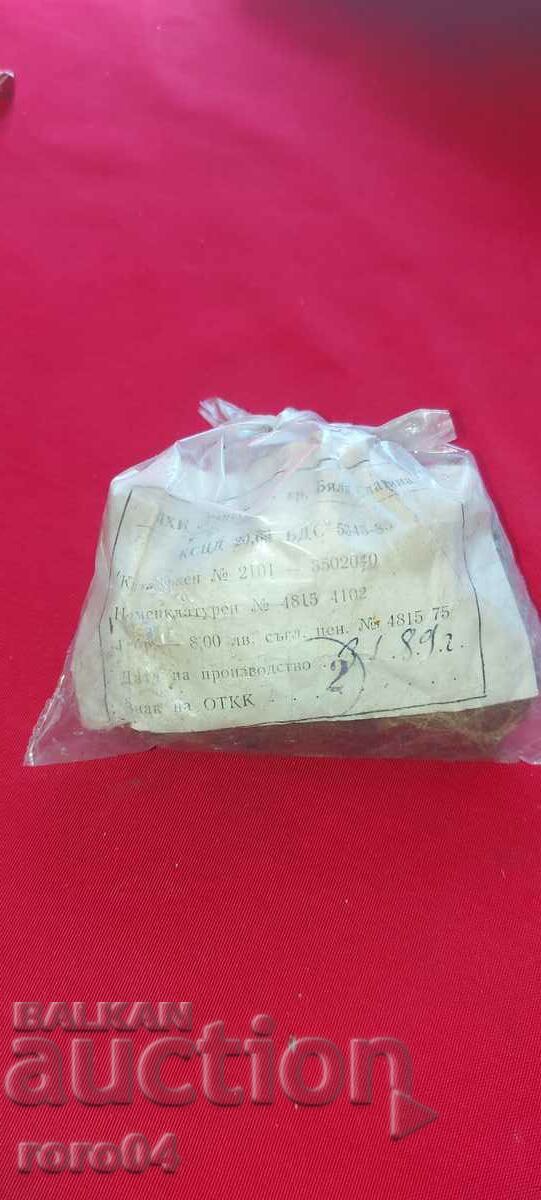 гр. Бяла Слатина
БДС 5343-8
№ 2101 — 3502040
Номенклатурен № 4815 4102
8,00 лв. съгл. цен. № 4815 75
Дата на производство 8.I.89г.
Знак на ОТКК
2
BALKAN
auction
roro04